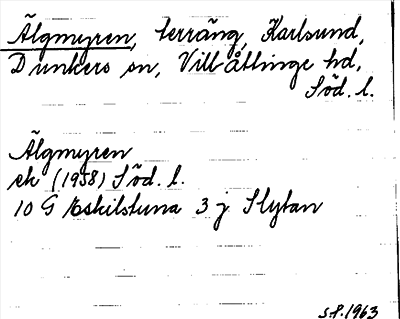 Älgmyren, terräng, Karlsund,
Dunkers sn, Villåttinge hd,
Söd. l.
Älgmyren
ek (1958) Söd. l.
10 G Eskilstuna 3 j Slytan
S.P. 1963